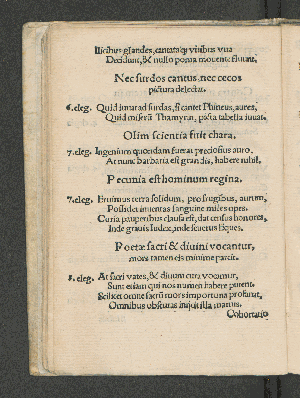 Ilicibus glandes, cantataq; vitibus vua
Decidunt, & nullo poma mouente fluunt.
Nec surdos cantus, nec cecos
pictura delectat.
6. eleg. Quid iuuat ad surdas, si cantet Phineus, aures,
Quid miserū Thamyrin, picta tabella iuuat.
Olim scientia fuit chara.
7. eleg. Ingenium quondam fuerat preciosius auro.
At nunc barbaria est grandis, habere nihil.
Pecunia est hominum regina.
7. eleg. Eruimus terra solidum, pro frugibus, aurum,
Possidet inuentas sanguine miles opes.
Curia pauperibus clausa est, dat census honores,
Inde grauis Iudex, inde seuerus Eques.
Poetæ sacri & diuini vocantur,
mors tamen eis minime parcit.
8. eleg. At sacri vates, & diuum cura vocamur,
Sunt etiam qui nos numen habere putent.
Scilicet omne sacrū mors importuna profanat,
Omnibus obscuras iniicit illa manus.
Cohortatio